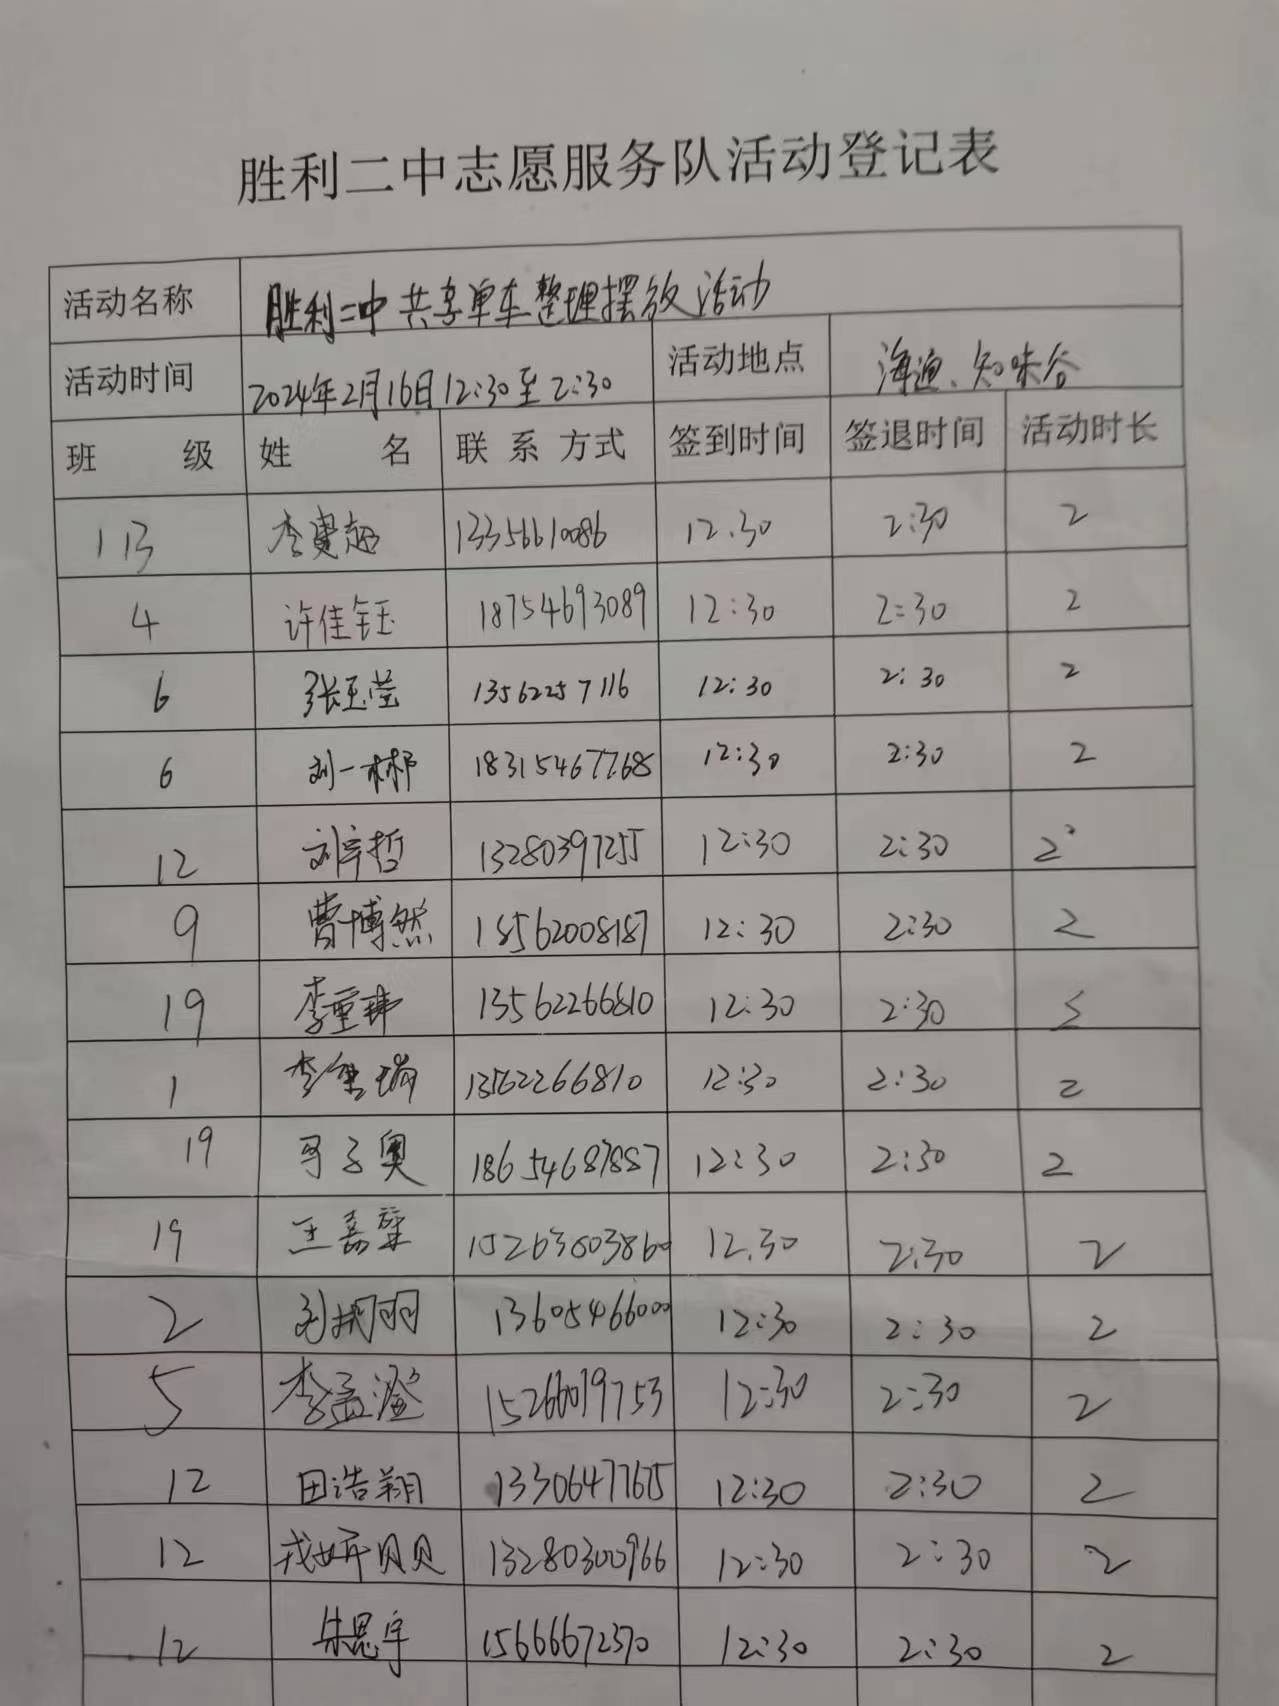 胜利二中志愿服务队活动登记表
活动名称 胜利二中共享单车整理摆放活动
活动时间 2024年2月16日12:30至2:30 活动地点 海通、知味谷
班 级 姓 名 联 系 方式 签到时间 签退时间 活动时长
113 李 13356610086 12.30 2:30 2
4 许佳钰 18754693089 12:30 2:30 2
6 张玉莹 13562257116 12:30 2:30 2
6 刘一彬 183154677685 12:30 2:30 2
12 刘宇哲 13280397255 12:30 2:30 2
9 曹博然 18562008187 12:30 2:30 2
19 李重玮 13562266810 12:30 2:30 2
1 李重瑞 13562266810 12:30 2:30 2
19 子奥 18654687887 12:30 2:30 2
19 王嘉 15263803860 12.30 2:30 2
2 羽 13605466000 12:30 2:30 2
5 李孟澄 15266019753 12:30 2:30 2
12 田浩翔 13306477675 12:30 2:30 2
12 戎妍贝贝 13280300966 12:30 2:30 2
12 朱思宇 15666672370 12:30 2:30 2